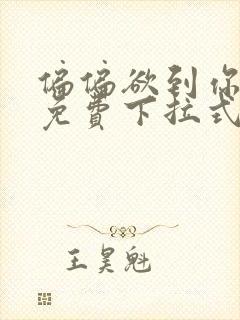 偏偏欲到你
免费下拉式
王昊魁